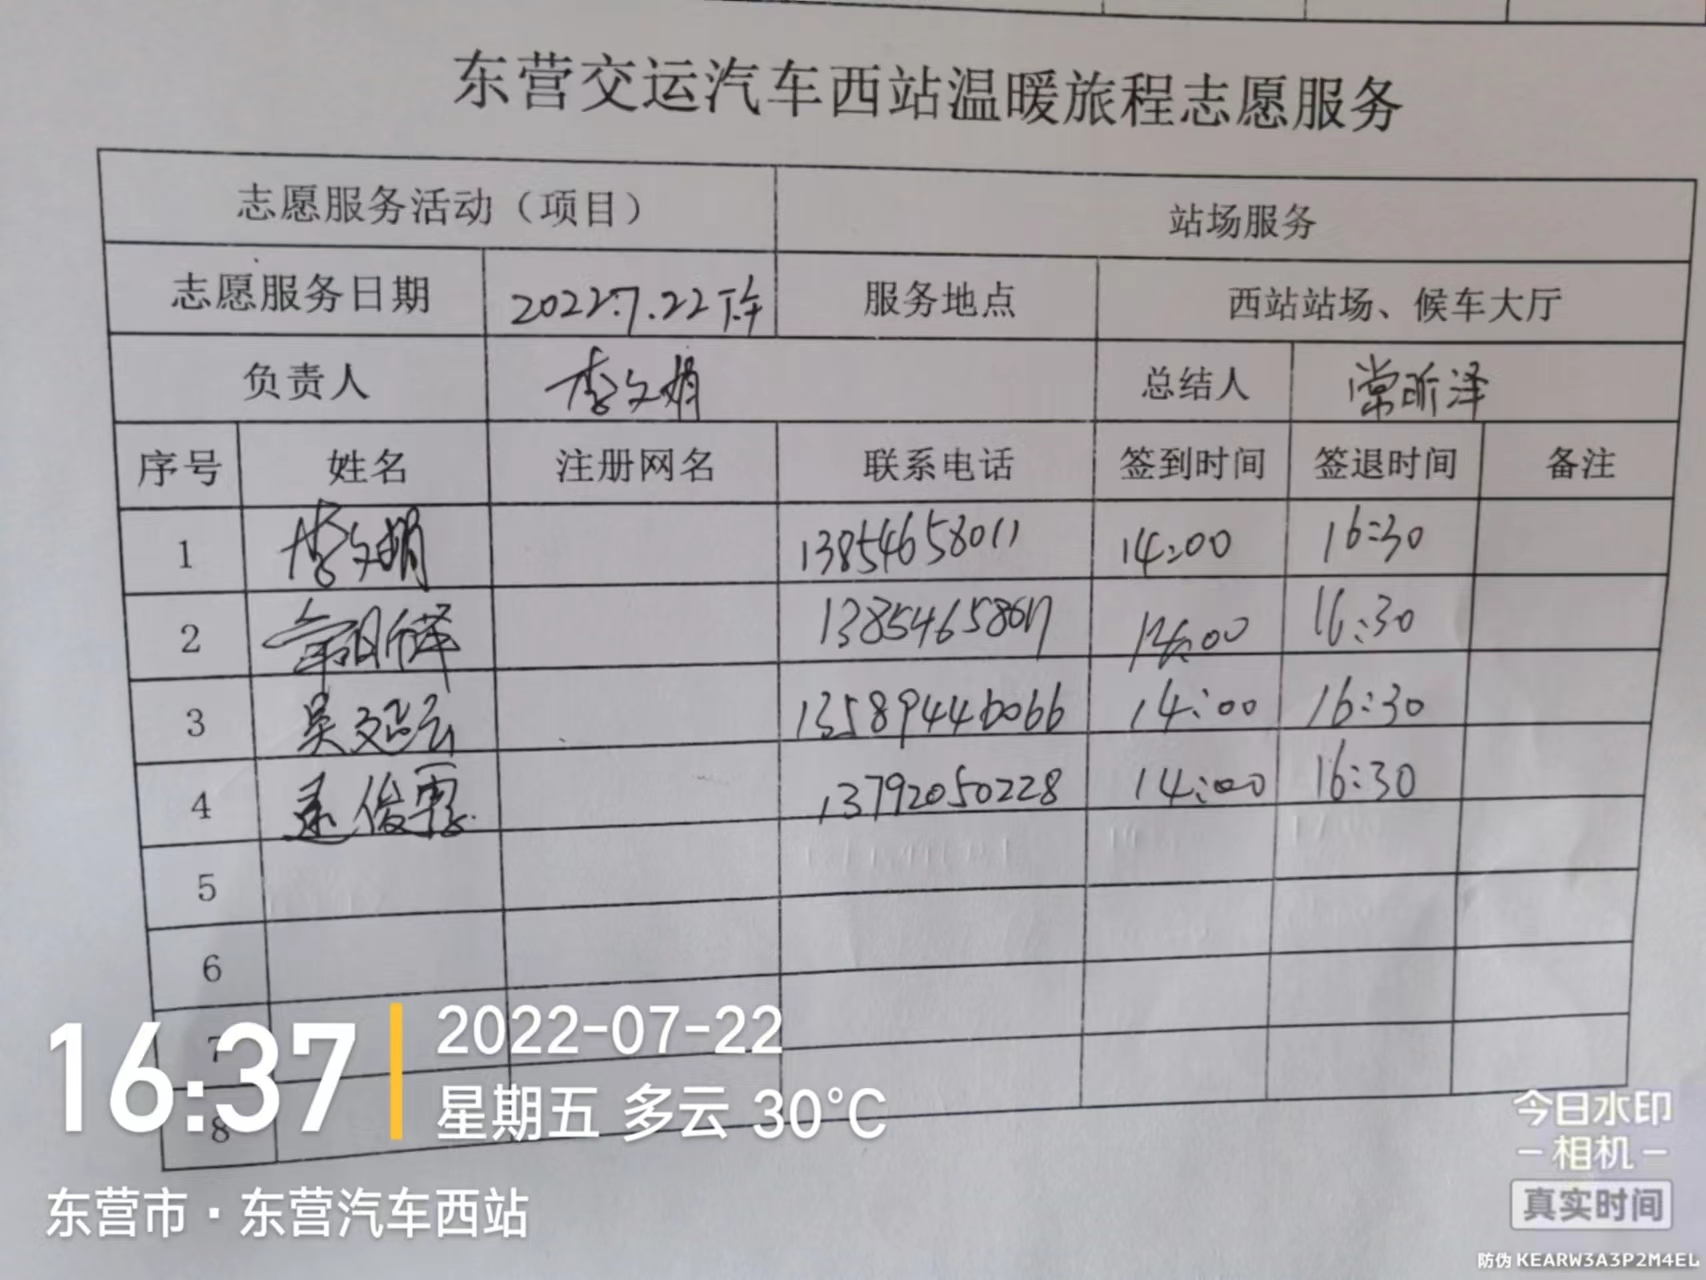 东营交运汽车西站温暖旅程志愿服务
志愿服务活动（项目） 站场服务
志愿服务日期 2022.7.22下午 服务地点 西站站场、候车大厅
负责人 李文娟 总结人 常昕泽
序号 姓名 注册网名 联系电话 签到时间 签退时间 备注
1 李文娟 13854658011 14:00 16:30
2 13854658017 14:00 16:30
3 吴延云 13589446066 14:00 16:30
4 俊霞 13792050228 14:00 16:30
5
6
7
8
16:37
2022-07-22
星期五 多云 30°C
东营市·东营汽车西站
今日水印
相机
真实时间
防伪 KEARW3A3P2M4EL